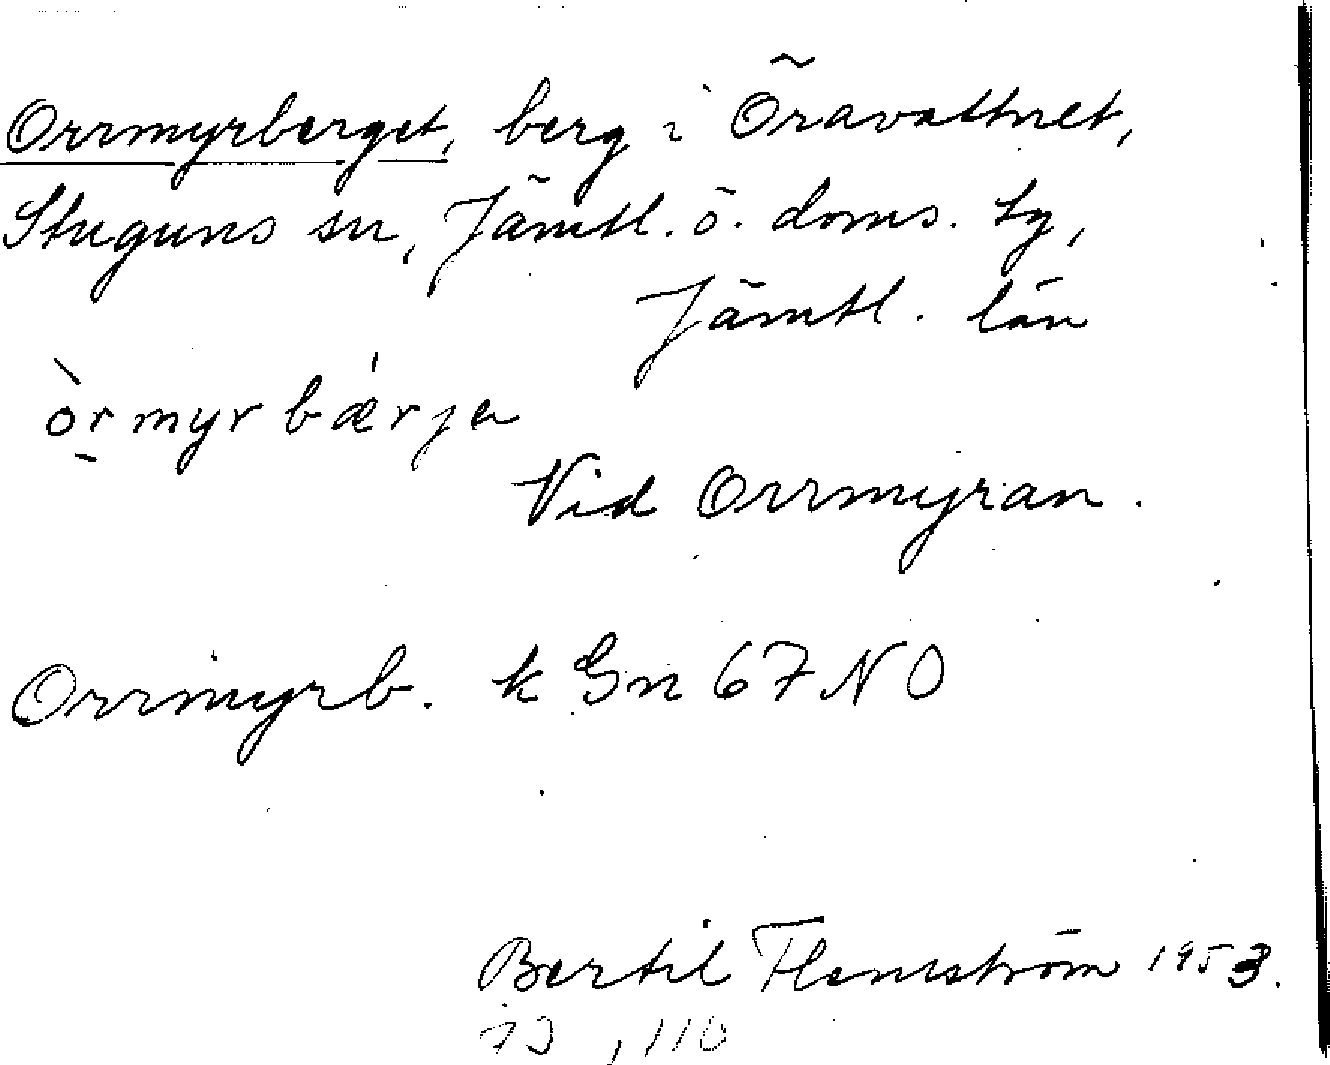 Orrmyrberget, berg i Öravattnet,
Stuguns sn, Jämtl. ö. doms. tg,
Jämtl. län
òrmyrbǽrja
Vid Orrmyran.
Orrmyrb. k Gn 67 NO
Bertil Flemström 1953.
, 110